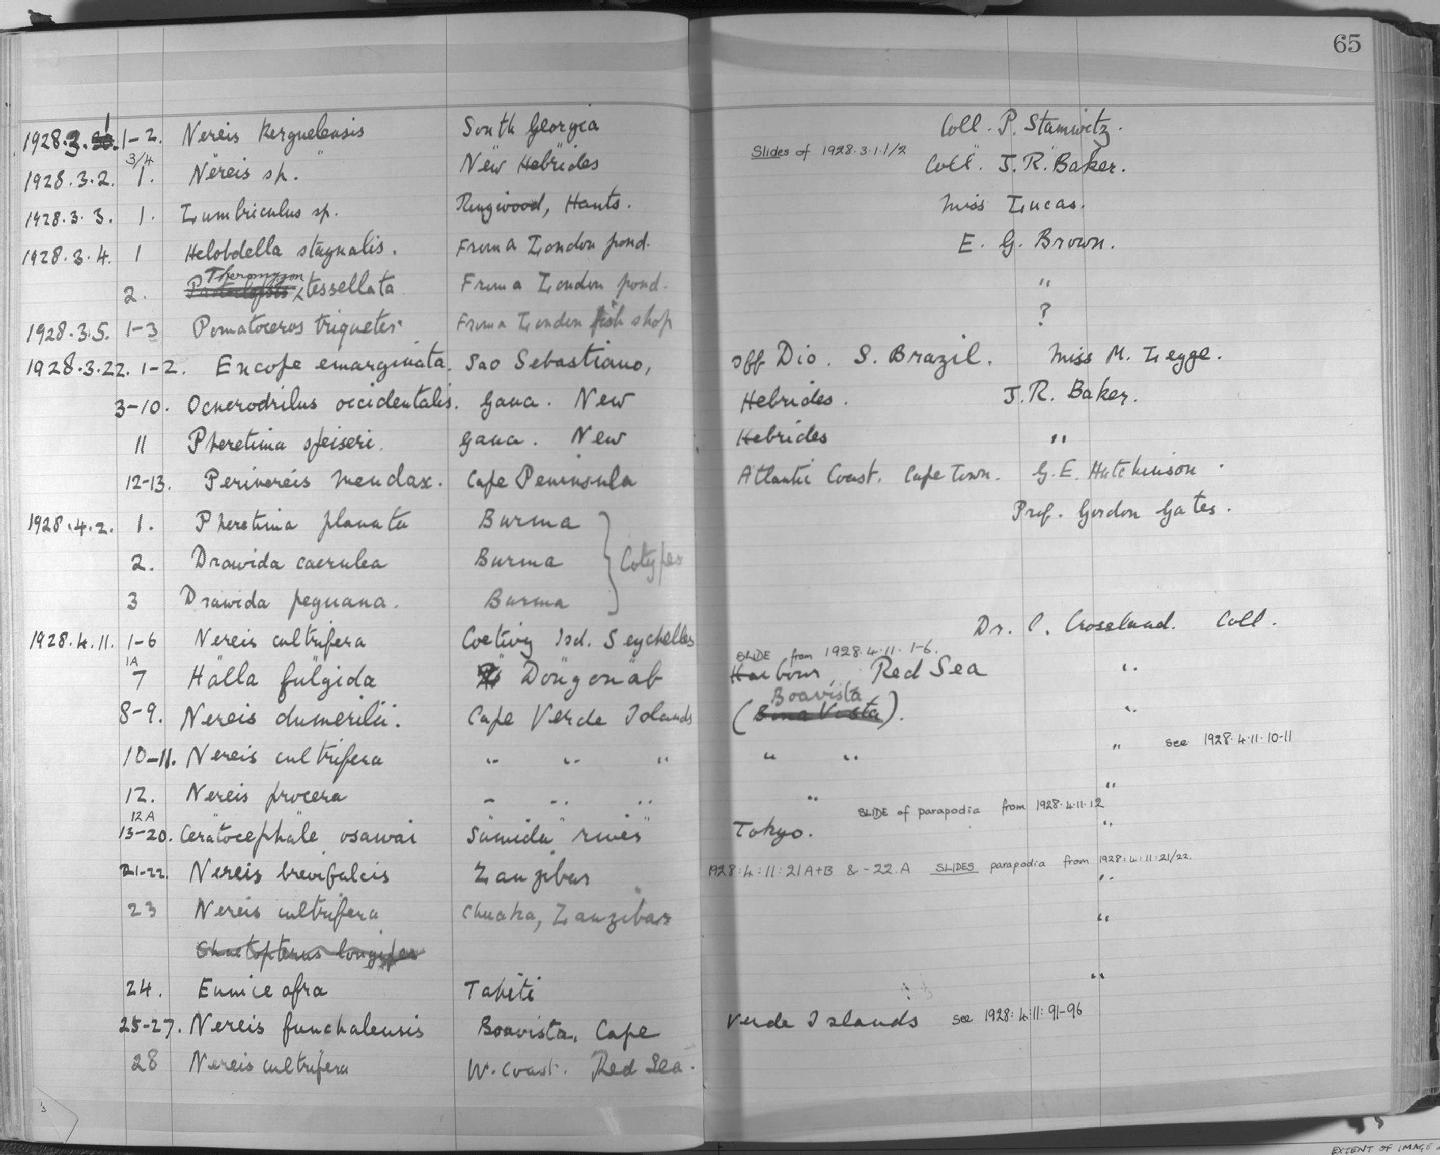 65
1928.3.1. 1-2. Nereis kerguelensis South Georgia Coll. P. Stamwitz.
3/4 Slides of 1928.3.1.1/2
1928.3.2. 1. Nereis sp. New Hebrides Coll. J.R. Baker.
1928.3.3. 1. Lumbriculus sp. Ringwood, Hants. Miss Lucas.
1928.3.4. 1 Helobdella stagnalis. From a London pond. E. G. Brown.
Theromyzon
2. tessellata From a London pond. "
1928.3.5. 1-3 Pomatoceros triqueter From a London fish shop ?
1928.3.22. 1-2. Encope emarginata. Sao Sebastiano, off Dio. S. Brazil. Miss M. Legge.
3-10. Ocnerodrilus occidentalis. Gaua. New Hebrides. J.R. Baker.
11 Pheretima speiseri. Gaua. New Hebrides "
12-13. Perinereis mendax. Cape Peninsula Atlantic Coast. Cape Town. G.E. Hutchinson.
1928.4.2. 1. Pheretima planata Burma Prof. Gordon Gates.
2. Drawida caerulea Burma Cotypes
3 Drawida peguana. Burma
1928.4.11. 1-6 Nereis cultrifera Coetivy Isd. Seychelles Dr. C. Crossland. Coll.
1A SLIDE from 1928.4.11. 1-6.
7 Halla fulgida Dongonab Harbour, Red Sea "
Boavista
8-9. Nereis dumerilii. Cape Verde Islands (Bona Vista). "
10-11. Nereis cultrifera " " " " " " see 1928.4.11.10-11
12. Nereis procera " " " " "
12A SLIDE of parapodia from 1928.4.11.12
13-20. Ceratocephale osawai Sumida river Tokyo. "
21-22. Nereis brevifalcis Zanzibar 1928:4:11:21A+B & -22.A SLIDES parapodia from 1928:4:11:21/22. "
23 Nereis cultrifera Chuaka, Zanzibar "
Chaetopterus longipes
24. Eunice afra Tahiti "
25-27. Nereis funchalensis Boavista, Cape Verde Islands see 1928:4:11:91-96
28 Nereis cultrifera W. Coast. Red Sea.
EXTENT OF IMAGE